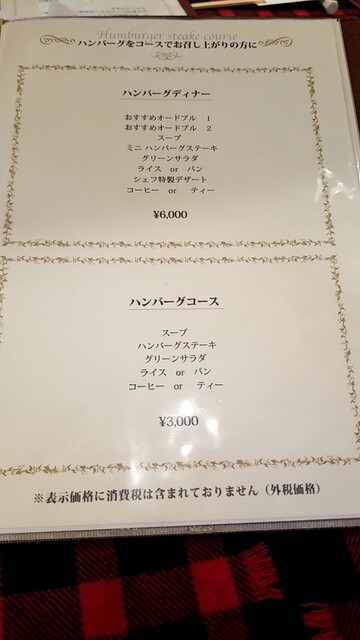 Humburger steake course
ハンバーグをコースでお召し上がりの方に
ハンバーグディナー
おすすめオードブル 1
おすすめオードブル 2
スープ
ミニ ハンバーグステーキ
グリーンサラダ
ライス or パン
シェフ特製デザート
コーヒー or ティー
¥6,000
ハンバーグコース
スープ
ハンバーグステーキ
グリーンサラダ
ライス or パン
コーヒー or ティー
¥3,000
※表示価格に消費税は含まれておりません（外税価格）